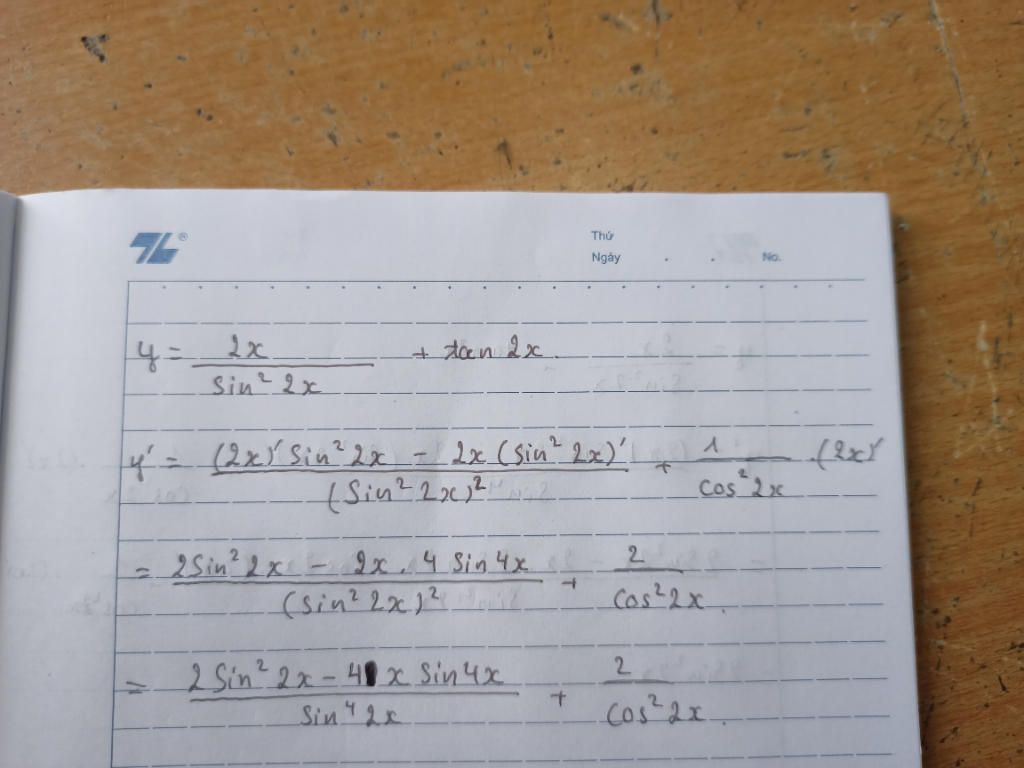 Thứ
Ngày . . No.
y = 2x / sin² 2x + tan 2x.
y' = ((2x)' sin² 2x - 2x (sin² 2x)') / (sin² 2x)² + 1 / cos² 2x . (2x)'
= (2 sin² 2x - 2x . 4 sin 4x) / (sin² 2x)² + 2 / cos² 2x.
= (2 sin² 2x - 4 x sin 4x) / sin⁴ 2x + 2 / cos² 2x.